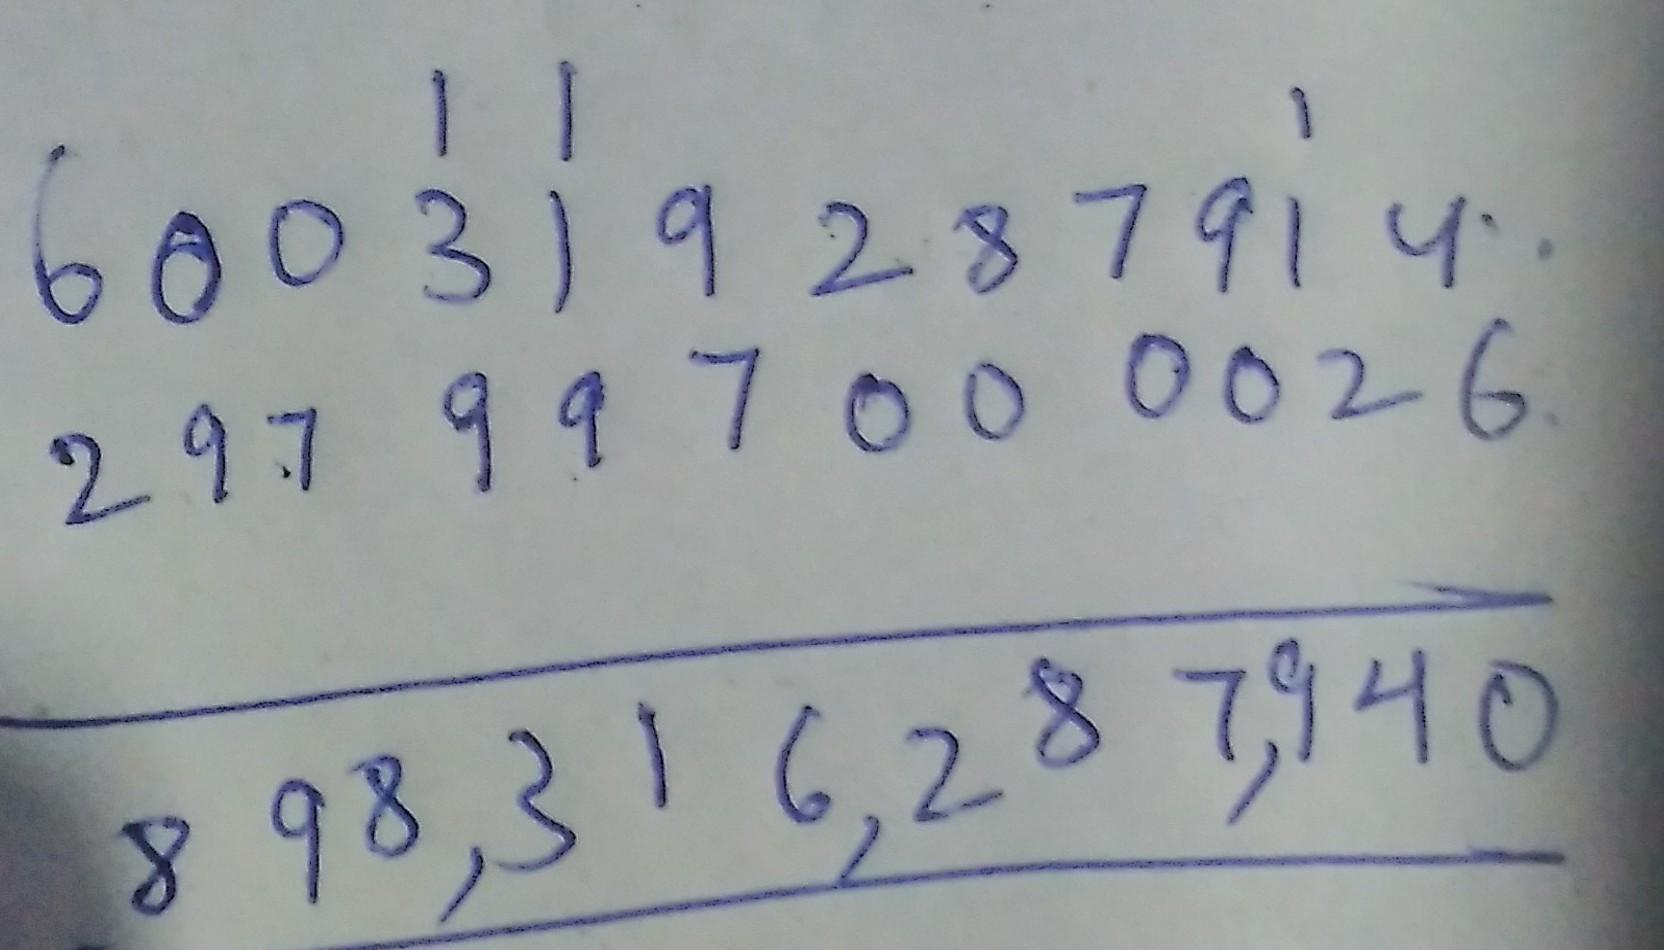 1 1 1
6 0 0 3 1 9 2 8 7 9 1 4
2 9 7 9 9 7 0 0 0 0 2 6
8 9 8 , 3 1 6 , 2 8 7 , 9 4 0